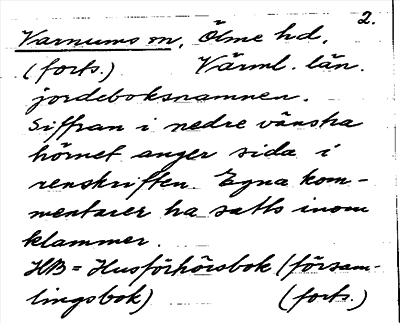 2.
Varnums sn, Ölme hd,
(forts.) Värml. län.
jordeboksnamnen.
Siffran i nedre vänstra
hörnet anger sida i
renskriften. Egna kom-
mentarer ha satts inom
klammer.
HB = Husförhörsbok (försam-
lingsbok) (forts.)